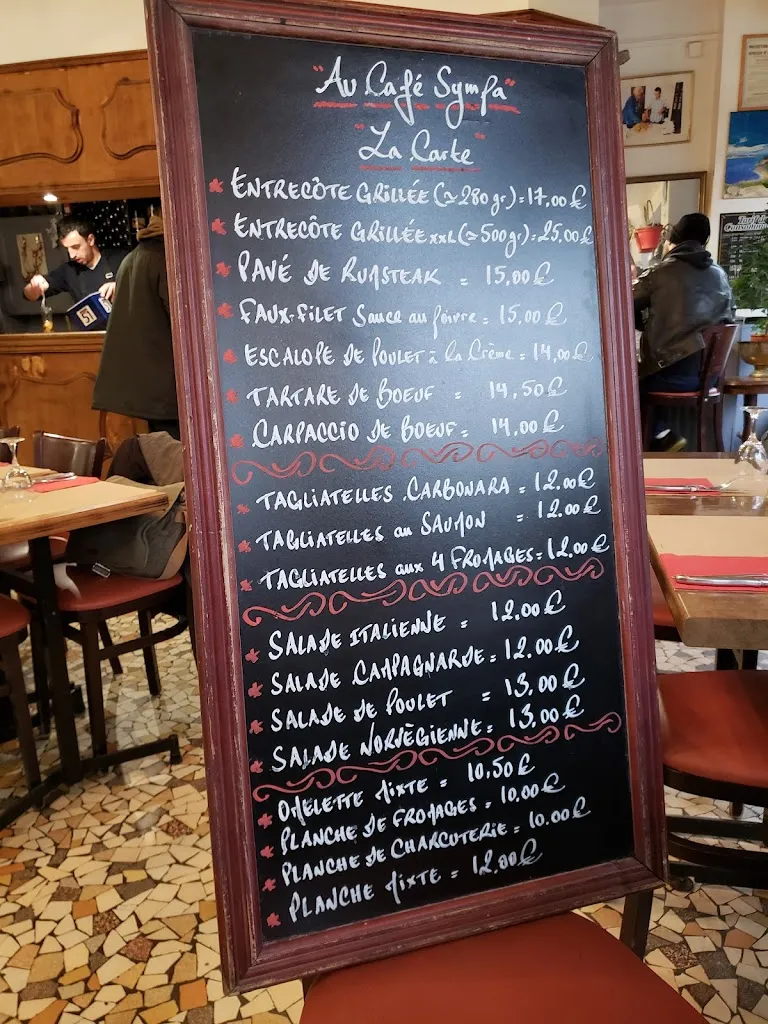 "Au Café Sympa"
"La Carte"
ENTRECÔTE GRILLÉE (≃280gr) = 17,00€
ENTRECÔTE GRILLÉE XXL (≃500gr) = 25,00€
PAVÉ DE RUMSTEAK = 15,00€
FAUX-FILET Sauce au poivre = 15,00€
ESCALOPE DE POULET à la Crème = 14,00€
TARTARE DE BOEUF = 14,50€
CARPACCIO DE BOEUF = 14,00€
TAGLIATELLES CARBONARA = 12,00€
TAGLIATELLES au SAUMON = 12,00€
TAGLIATELLES aux 4 FROMAGES = 12,00€
SALADE ITALIENNE = 12,00€
SALADE CAMPAGNARDE = 12,00€
SALADE DE POULET = 13,00€
SALADE NORVÈGIENNE = 13,00€
OMELETTE MIXTE = 10,50€
PLANCHE DE FROMAGES = 10,00€
PLANCHE DE CHARCUTERIE = 10,00€
PLANCHE MIXTE = 12,00€